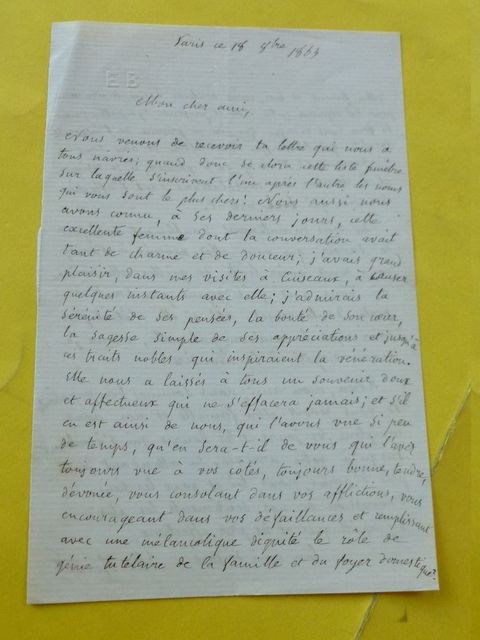 Paris ce 18 9bre 1863
E B
Mon cher ami,
Nous venons de recevoir ta lettre qui nous a
tous navrés; quand donc se clora cette liste funèbre
sur laquelle s'inscrivent l'un après l'autre les noms
qui vous sont le plus chers! Nous aussi nous
avons connu, à ses derniers jours, cette
excellente femme dont la conversation avait
tant de charme et de douceur; j'avais grand
plaisir, dans mes visites à Cuiseaux, à causer
quelques instants avec elle; j'admirais la
sérénité de ses pensées, la bonté de son cœur,
la sagesse simple de ses appréciations et jusqu'à
ces traits nobles qui inspiraient la vénération.
Elle nous a laissés à tous un souvenir doux
et affectueux qui ne s'effacera jamais; et s'il
en est ainsi de nous, qui l'avons vue si peu
de temps, qu'en sera-t-il de vous qui l'avez
toujours vue à vos côtés, toujours bonne, tendre,
dévouée, vous consolant dans vos afflictions, vous
encourageant dans vos défaillances et remplissant
avec une mélancolique dignité le rôle de
génie tutélaire de la famille et du foyer domestique?